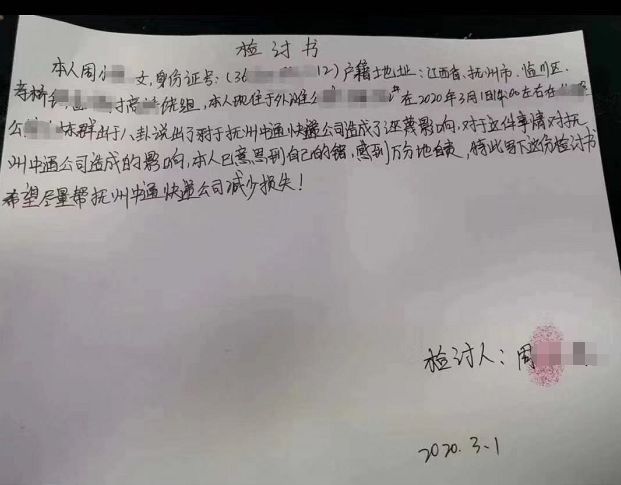 检讨书
本人周小 女,身份证号:(36 12)户籍地址:江西省.抚州市.临川区.
组,本人现住于外 在2020年3月1日 左右在
公 群出于八卦说出了对于抚州中通快递公司造成了 影响,对于这件事情对抚
州中通公司造成的影响,本人已意思到自己的错,感到万分地自责,特此写下这份检讨书
希望尽量帮抚州中通快递公司减少损失!
检讨人:周
2020.3.1